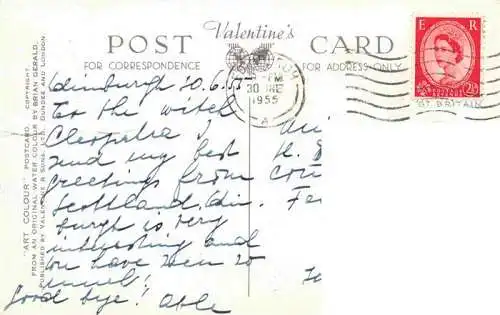 Valentine's
POST CARD
FOR CORRESPONDENCE
FOR ADDRESS ONLY
E R
2½D
30 JNE
1955
A
GT BRITAIN
"ART COLOUR" POSTCARD. COPYRIGHT.
FROM AN ORIGINAL WATER COLOUR BY BRIAN GERALD.
PUBLISHED BY VALENTINE & SONS, LTD., DUNDEE AND LONDON.
Edinburgh 30.6.55
To the witch
Cleopatra I
send my best
greetings from
Scottland. Edin-
burgh is very
interesting and
you have seen so
good bye!